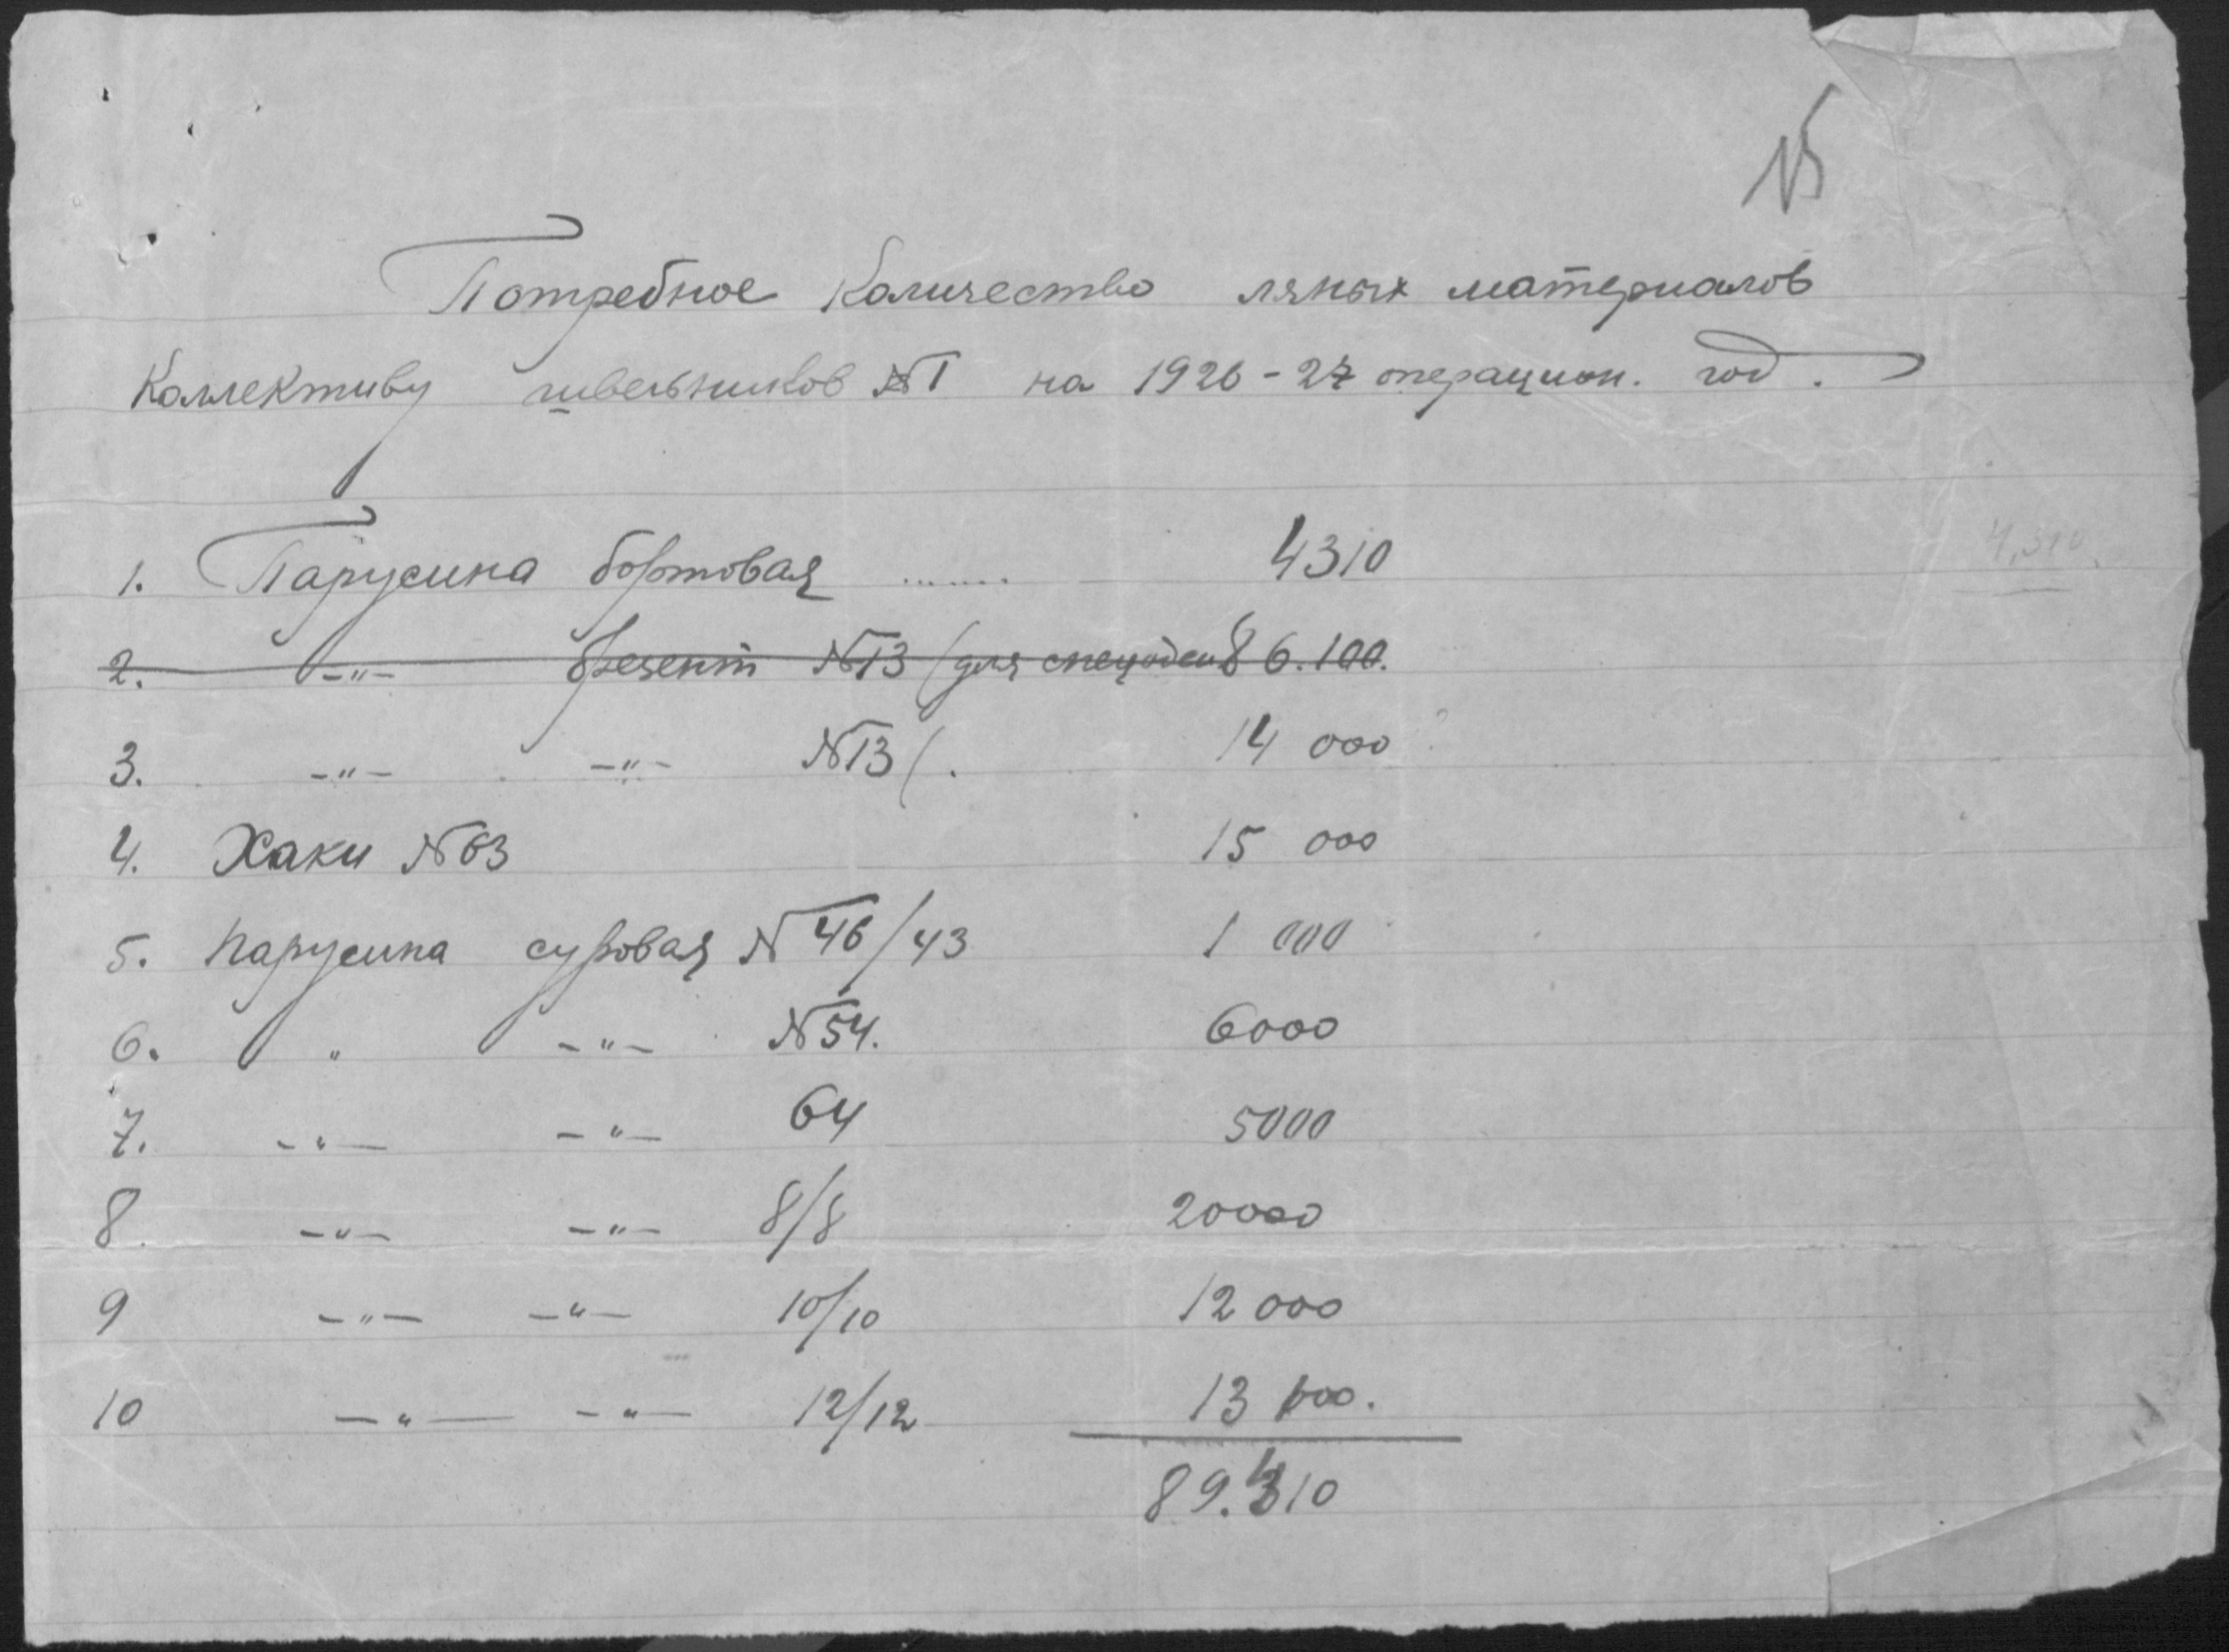 15
Потребное Количество льных материалов
Коллективу швейников №1 на 1926-27 операцион. год.
1. Парусина бортовая ....... 4310
2. -"- брезент №13 (для спецодеж 86.100.
3. -"- -"- №13 (. 14 000
4. Хаки №63 15 000
5. Парусина суровая №46/43 1 000
6. " -"- №54. 6000
7. -"- -"- 64 5000
8. -"- -"- 8/8 20000
9 -"- -"- 10/10 12 000
10 -"- -"- 12/12 13 100.
89.410